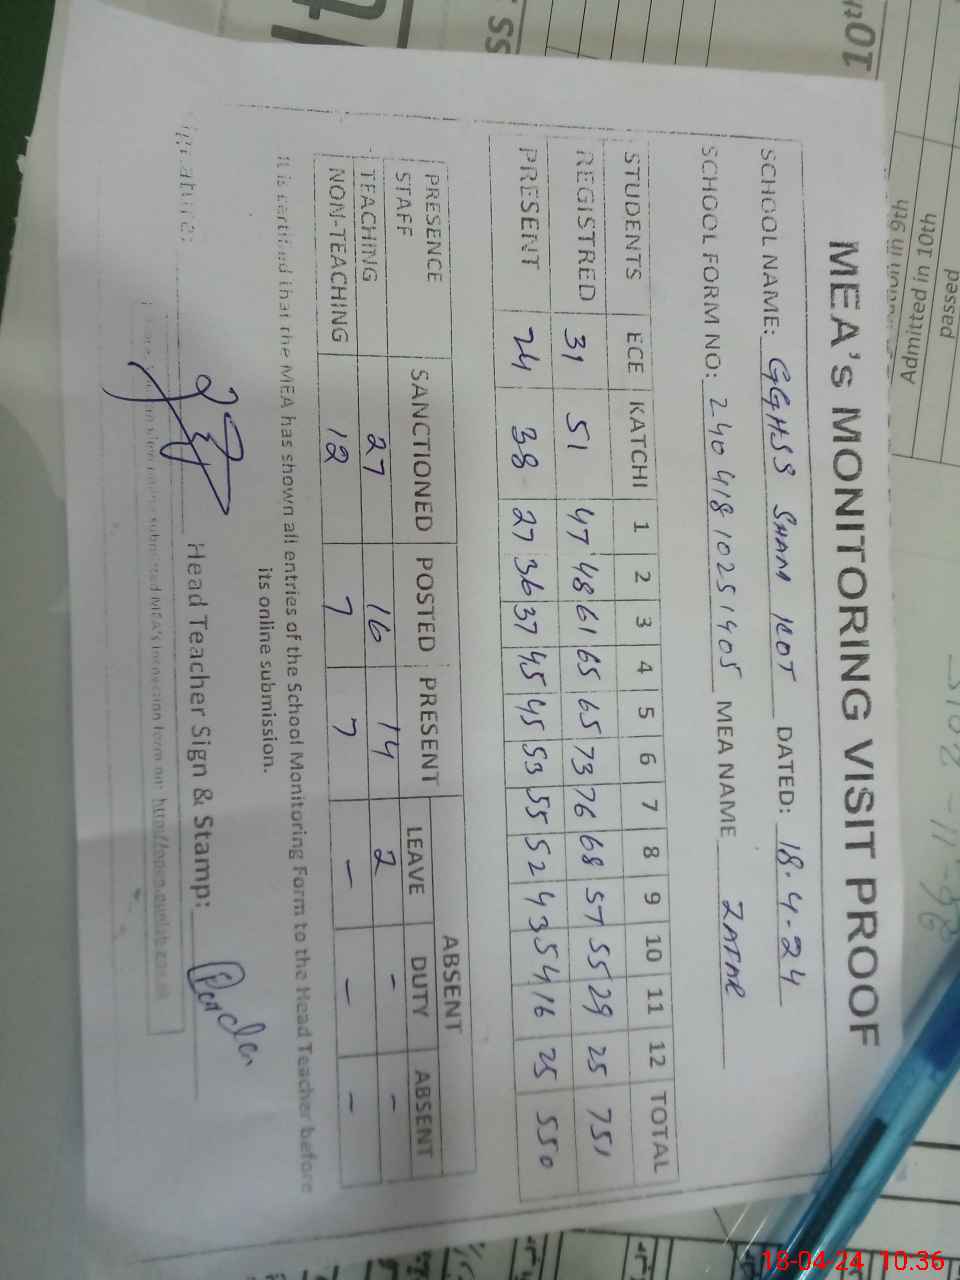 MEA's MONITORING VISIT PROOF
SCHOOL NAME: GGHSS SHAM KOT DATED: 18.4.24
SCHOOL FORM NO: 240 418 10251405 MEA NAME ZAFAR
STUDENTS ECE KATCHI 1 2 3 4 5 6 7 8 9 10 11 12 TOTAL
REGISTRED 31 51 47 48 61 65 65 73 76 68 57 55 29 25 751
PRESENT 24 38 27 36 37 45 45 53 55 52 43 54 16 25 550
PRESENCE SANCTIONED POSTED PRESENT ABSENT
STAFF LEAVE DUTY ABSENT
TEACHING 27 16 14 2 - -
NON-TEACHING 12 7 7 - - -
It is certified that the MEA has shown all entries of the School Monitoring Form to the Head Teacher before
its online submission.
Signature: Head Teacher Sign & Stamp:
submitted MEA's
passed
Admitted in 10th
in 9th
10th
SS
18-04-24 10:36